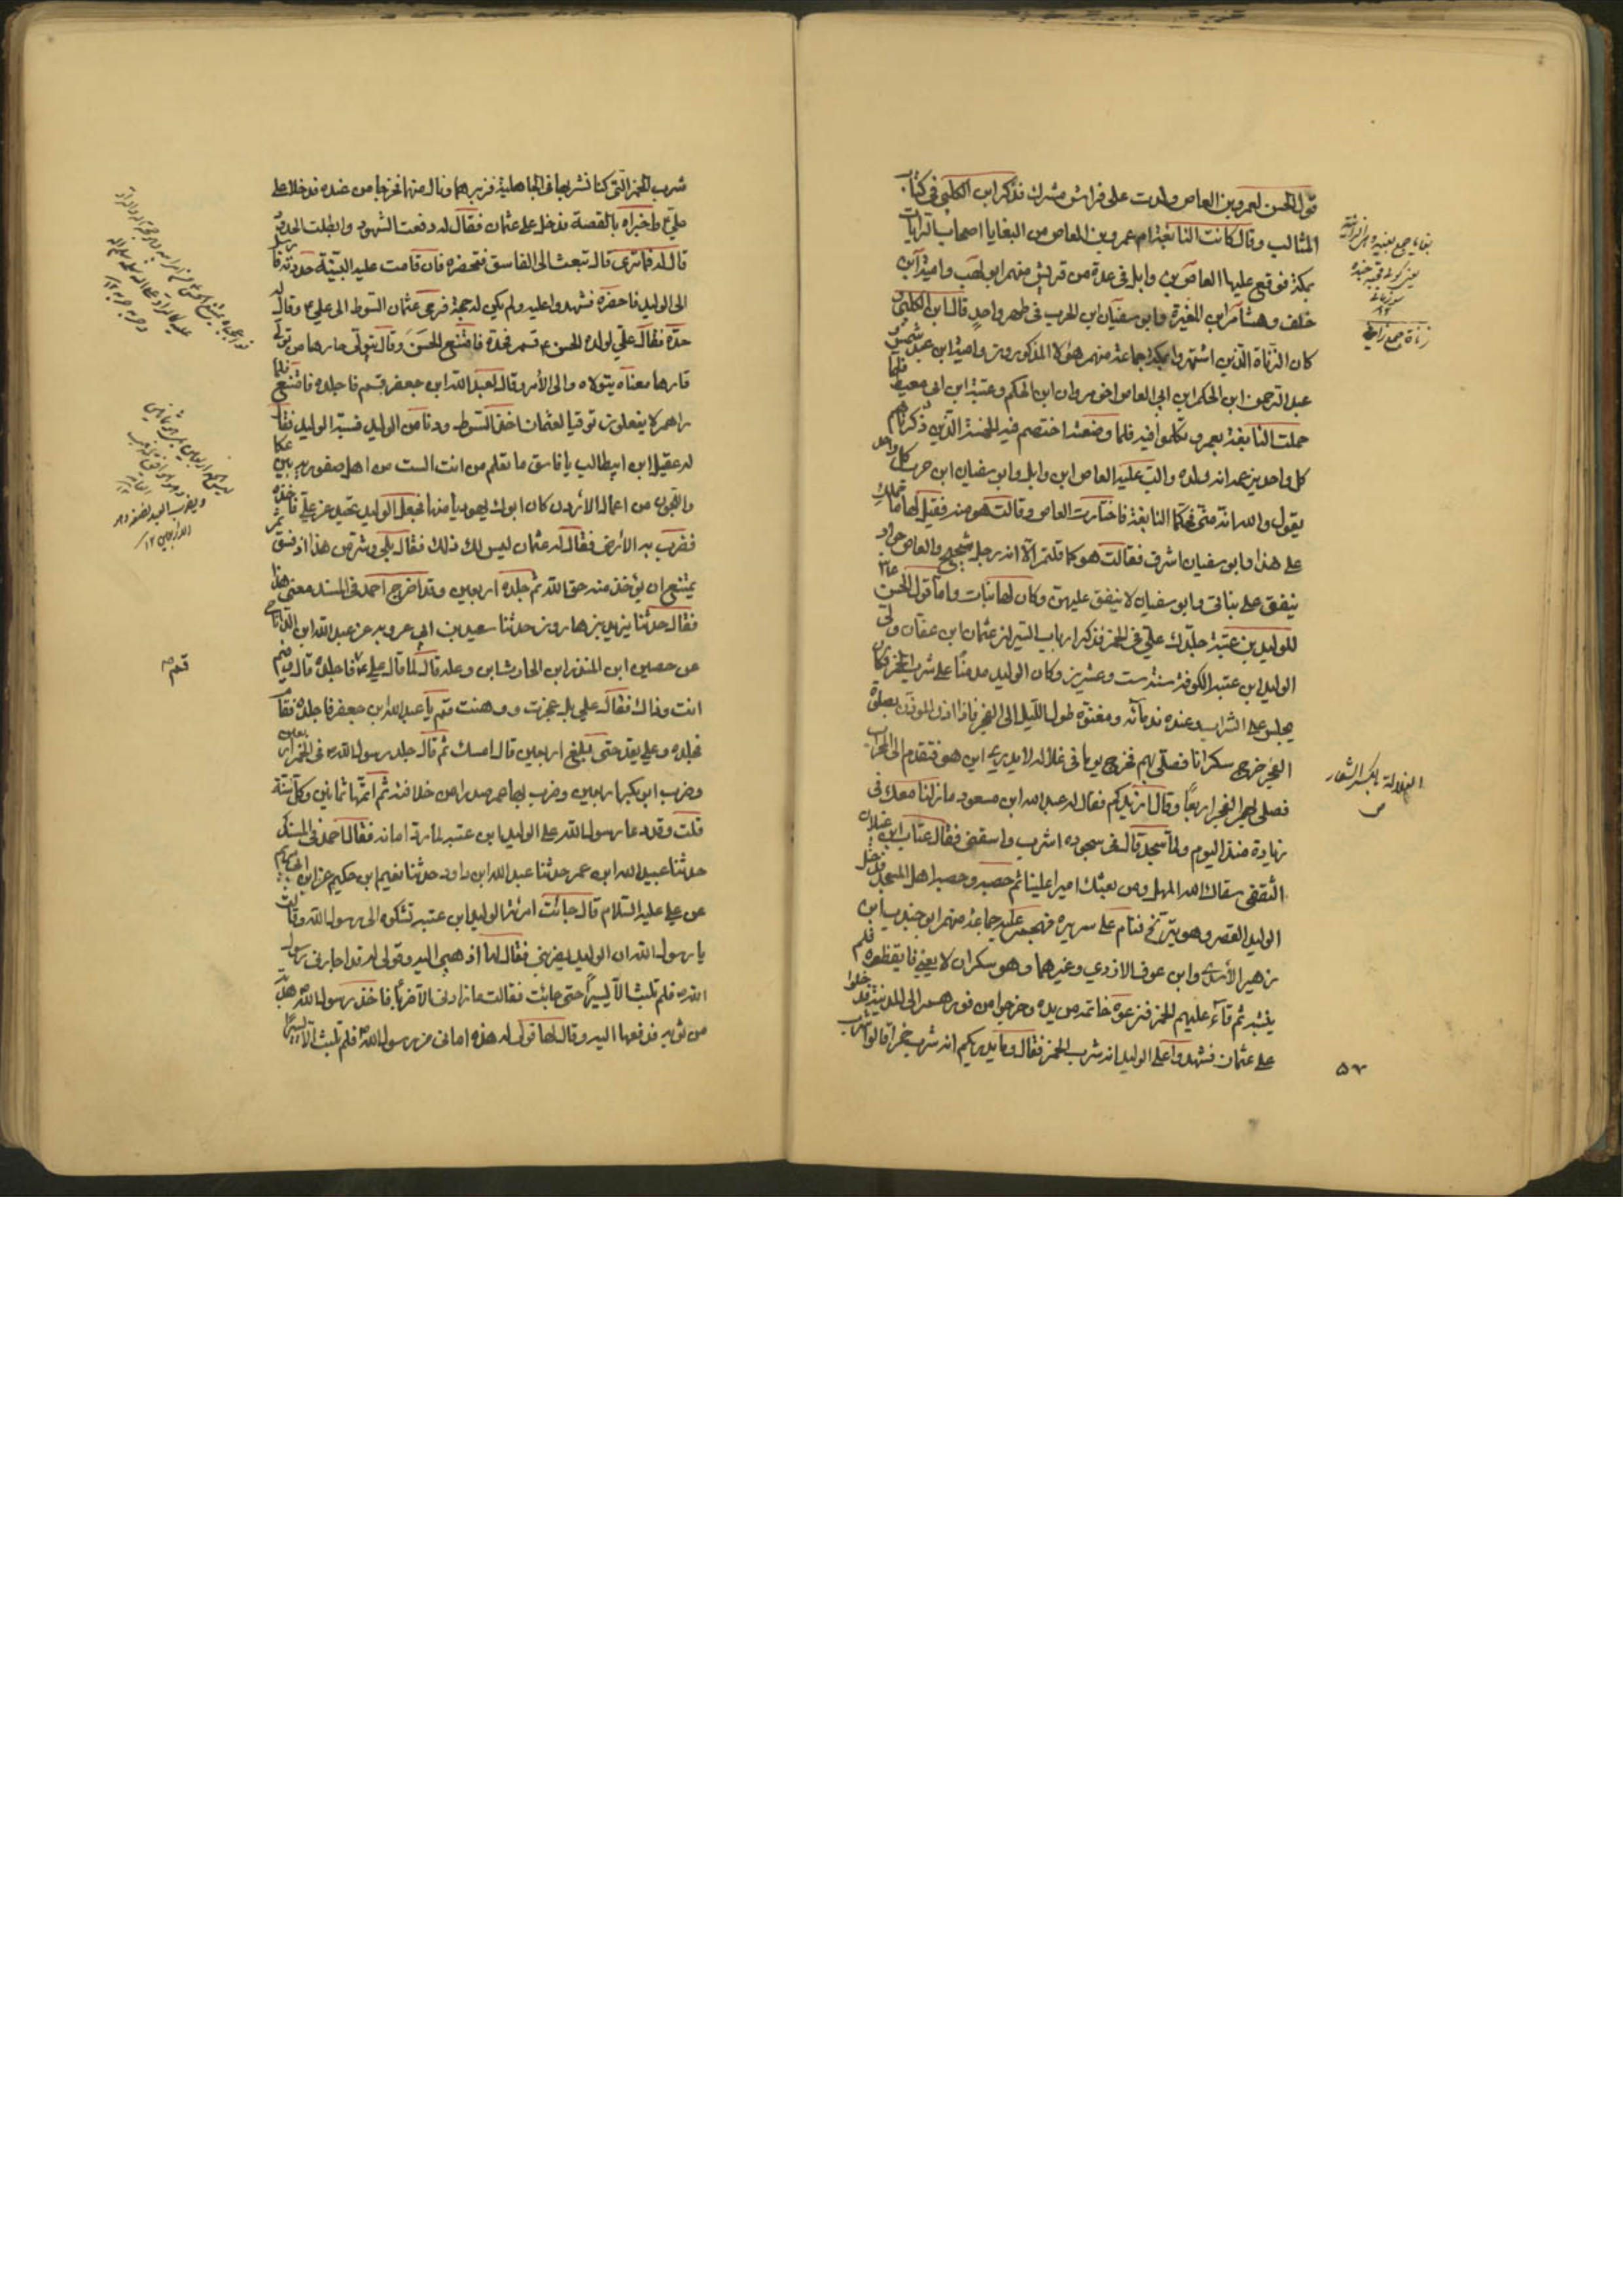 قول الحسن لعمرو بن العاص ولدت على فراش مشرك فذكر ابن الكلبي في كتاب
المثالب وقال كانت النابغة ام عمرو بن العاص من البغايا اصحاب الرايات
بمكة فوقع عليها العاص بن وابل في عدة من قريش منهم ابو لهب وامية ابن
خلف وهشام ابن المغيرة وابو سفيان ابن الحرب في طهر واحد قال ابن الكلبي و
كان الزناة الذين اشتهروا بمكة جماعة منهم هؤلاء المذكورون وامية ابن عبد شمس و
عبد الرحمن ابن الحكم ابن ابي العاص اخو مروان ابن الحكم وعتبة ابن ابي معيط فلما
حملت النابغة بعمرو تكلموا فيه فلما وضعته اختصم فيه الخمسة الذين ذكرناهم
كل واحد يزعم انه ولده والب عليه العاص ابن وابل وابو سفيان ابن حرب كل واحد
يقول والله انه مني فحكما النابغة فاختارت العاص وقالت هو منه فقيل لها ما حملك
على هذا وابو سفيان اشرف فقالت هو كما قلتم الا انه رجل شحيح والعاص جواد
ينفق على بناتي وابو سفيان لا ينفق عليهن وكان لها بنات واما قول الحسن ع
للوليد بن عتبة جلدك علي في الخمر فذكر ارباب السير ان عثمان ابن عفان ولى
الوليد ابن عتبة الكوفة سنة ست وعشرين وكان الوليد مدمنا على شرب الخمر وكان
يجلس على الشراب عنده ندمائه ومغنوه طول الليل الى الفجر فاذا اذن الموذن بصلوة
الفجر خرج سكرانا فصلى بهم فخرج يوما في غلالة لا يدري اين هو فتقدم الى المحراب
فصلى بهم الفجر اربعا وقال ازيدكم فقال له عبد الله ابن مسعود ما زلنا معك في
زيادة منذ اليوم ولما سجد قال في سجوده اشرب واسقني فقال عتاب ابن غيلان
الثقفي سقاك الله المهل ومن بعثك اميرا علينا ثم حصبه وحصبه اهل المسجد فدخل
الوليد القصر وهو يترنح فنام على سريره فهجم عليه جماعة منهم ابو جندب ابن
زهير الأسدي وابن عوف الازدي وغيرهما وهو سكران لا يعي فايقظوه فلم
ينتبه ثم قاء عليهم الخمر فنزعوه خاتمه من يده وخرجوا من فورهم الى المدينة فدخلوا
على عثمان فشهدوا على الوليد انه شرب الخمر فقال وما يدريكم انه شرب خمرا قالوا شرب
الغلالة بالكسر الشعار
ص
زناة جمع زاني
٥٧
شرب الخمر التي كنا نشربها في الجاهلية فزبرهما ونال منهما فخرجا من عنده فدخلا على
علي ع واخبراه بالقصة فدخل على عثمان فقال له دفعت الشهود وابطلت الحدود
قال له فما ترى قال تبعث الى الفاسق فتحضره فان قامت عليه البينة حددته فارسل
الى الوليد فاحضره فشهدوا عليه ولم يكن له حجة فرمى عثمان السوط الى علي ع وقال له
حده فقال علي لولده الحسن ع قم فحده فامتنع الحسن وقال يتولى حارها من تولى
قارها معناه يتولاه والى الأمر وقال لعبد الله ابن جعفر قم فاجلده فامتنع فلما
راهم لا يفعلون توقيا لعثمان اخذ السوط ودنا من الوليد فسبه الوليد فقال
له عقيل ابن ابيطالب يا فاسق ما تعلم من انت الست من اهل صفورية بين عكا
واللجون من اعمال الأردن كان ابوك يهوديا منها فجعل الوليد يحيد عن علي فاخذه
فضرب به الأرض فقال له عثمان ليس لك ذلك فقال بلى وشر من هذا اذ فسق ثم
يمتنع ان يؤخذ منه حق الله ثم جلده اربعين وقد اخرج احمد في المسند معنى هذا
فقال حدثنا يزيد بن هارون حدثنا سعيد بن ابي عروبة عن عبد الله ابن الداناج
عن حصين ابن المنذر ابن الحارث ابن وعلة قال لما قال علي ع فاجلده قال قم
انت وذاك فقال علي بل عجزت ووهنت قم يا عبد الله بن جعفر فاجلده فقام
فجلده وعلي يعد حتى بلغ اربعين قال امسك ثم قال جلد رسول الله ص في الخمر اربعين
وضرب ابو بكر اربعين وضرب لها عمر صدرا من خلافته ثم اتمها ثمانين وكل سنة
قلت وقد دعا رسول الله على الوليد ابن عتبة لما رد امانه فقال احمد في المسند
حدثنا عبيد الله ابن عمر حدثنا عبد الله ابن داود حدثنا نعيم ابن حكيم عن ابي مريم
عن علي عليه السلام قال جائت امرئة الوليد ابن عتبة تشكوه الى رسول الله وقالت
يا رسول الله ان الوليد يضربني فقال لها اذهبي اليه وقولي له قد اجارني رسول
الله ص فلم تلبث الا يسيرا حتى جائت فقالت ما زادني الا ضربا فاخذ رسول الله ص هدبة
من ثوبه فدفعها اليه وقال لها قولي له هذه اماني من رسول الله ص فلم تلبث الا يسيرا
قم ص